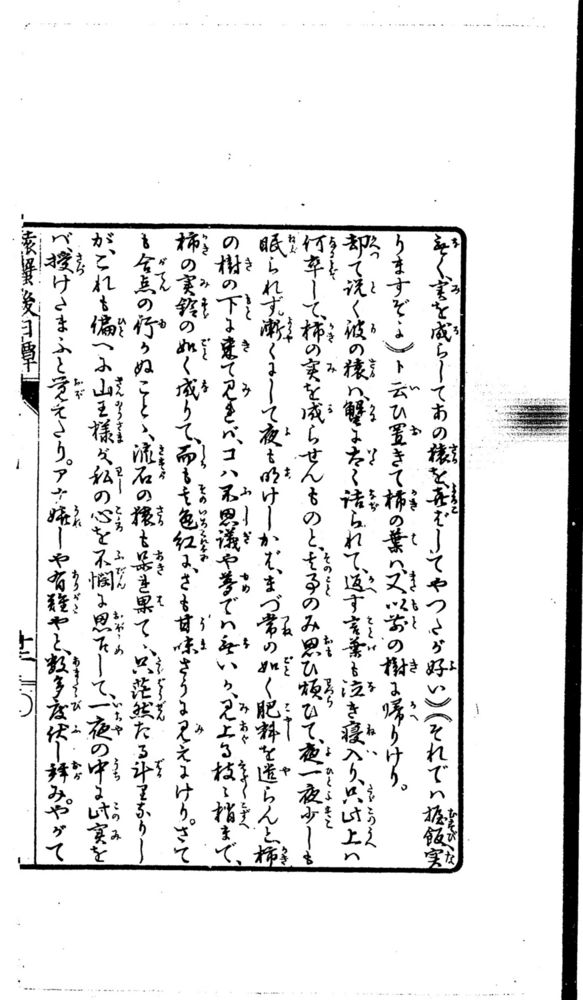 く実を成らしてあの猿を喜ばしてやつたが好い)(それでハ握飯実
りますぞよ)ト云ひ置きて柿の葉ハ、又以前の樹に帰りけり。
却て説く彼の猿ハ、蟹に太く詰られて、返す言葉も泣き寝入り、只此上ハ
何卒して、柿の実を成らせんものと、其事のみ思ひ煩ひて、夜一夜少しも
眠られず。漸くにして夜も明けしかバ、まづ常の如く肥料を遣らんと、柿
の樹の下に来て見れバ、コハ不思議や夢でハ無いか、見上る枝々梢まで、
柿の実鈴の如く成りて、而も其色紅に、さも甘味さうに見えにけり。さて
も合点の行かぬことゝ、流石の猿も呆れ果て、只茫然たる斗りなりし
が、これも偏へに山王様が私の心を不憫に思召して、一夜の中に此実を
バ、授けたまふと覚えたり。アナ嬉しや有難やと、数多度伏し拝みやがて
猿蟹後日譚